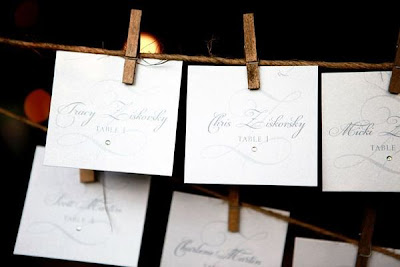 Tracy Ziskovsky
TABLE 1
Chris Ziskovsky
TABLE 1
Micki
Scott Martin
TABLE
Charlene Martin